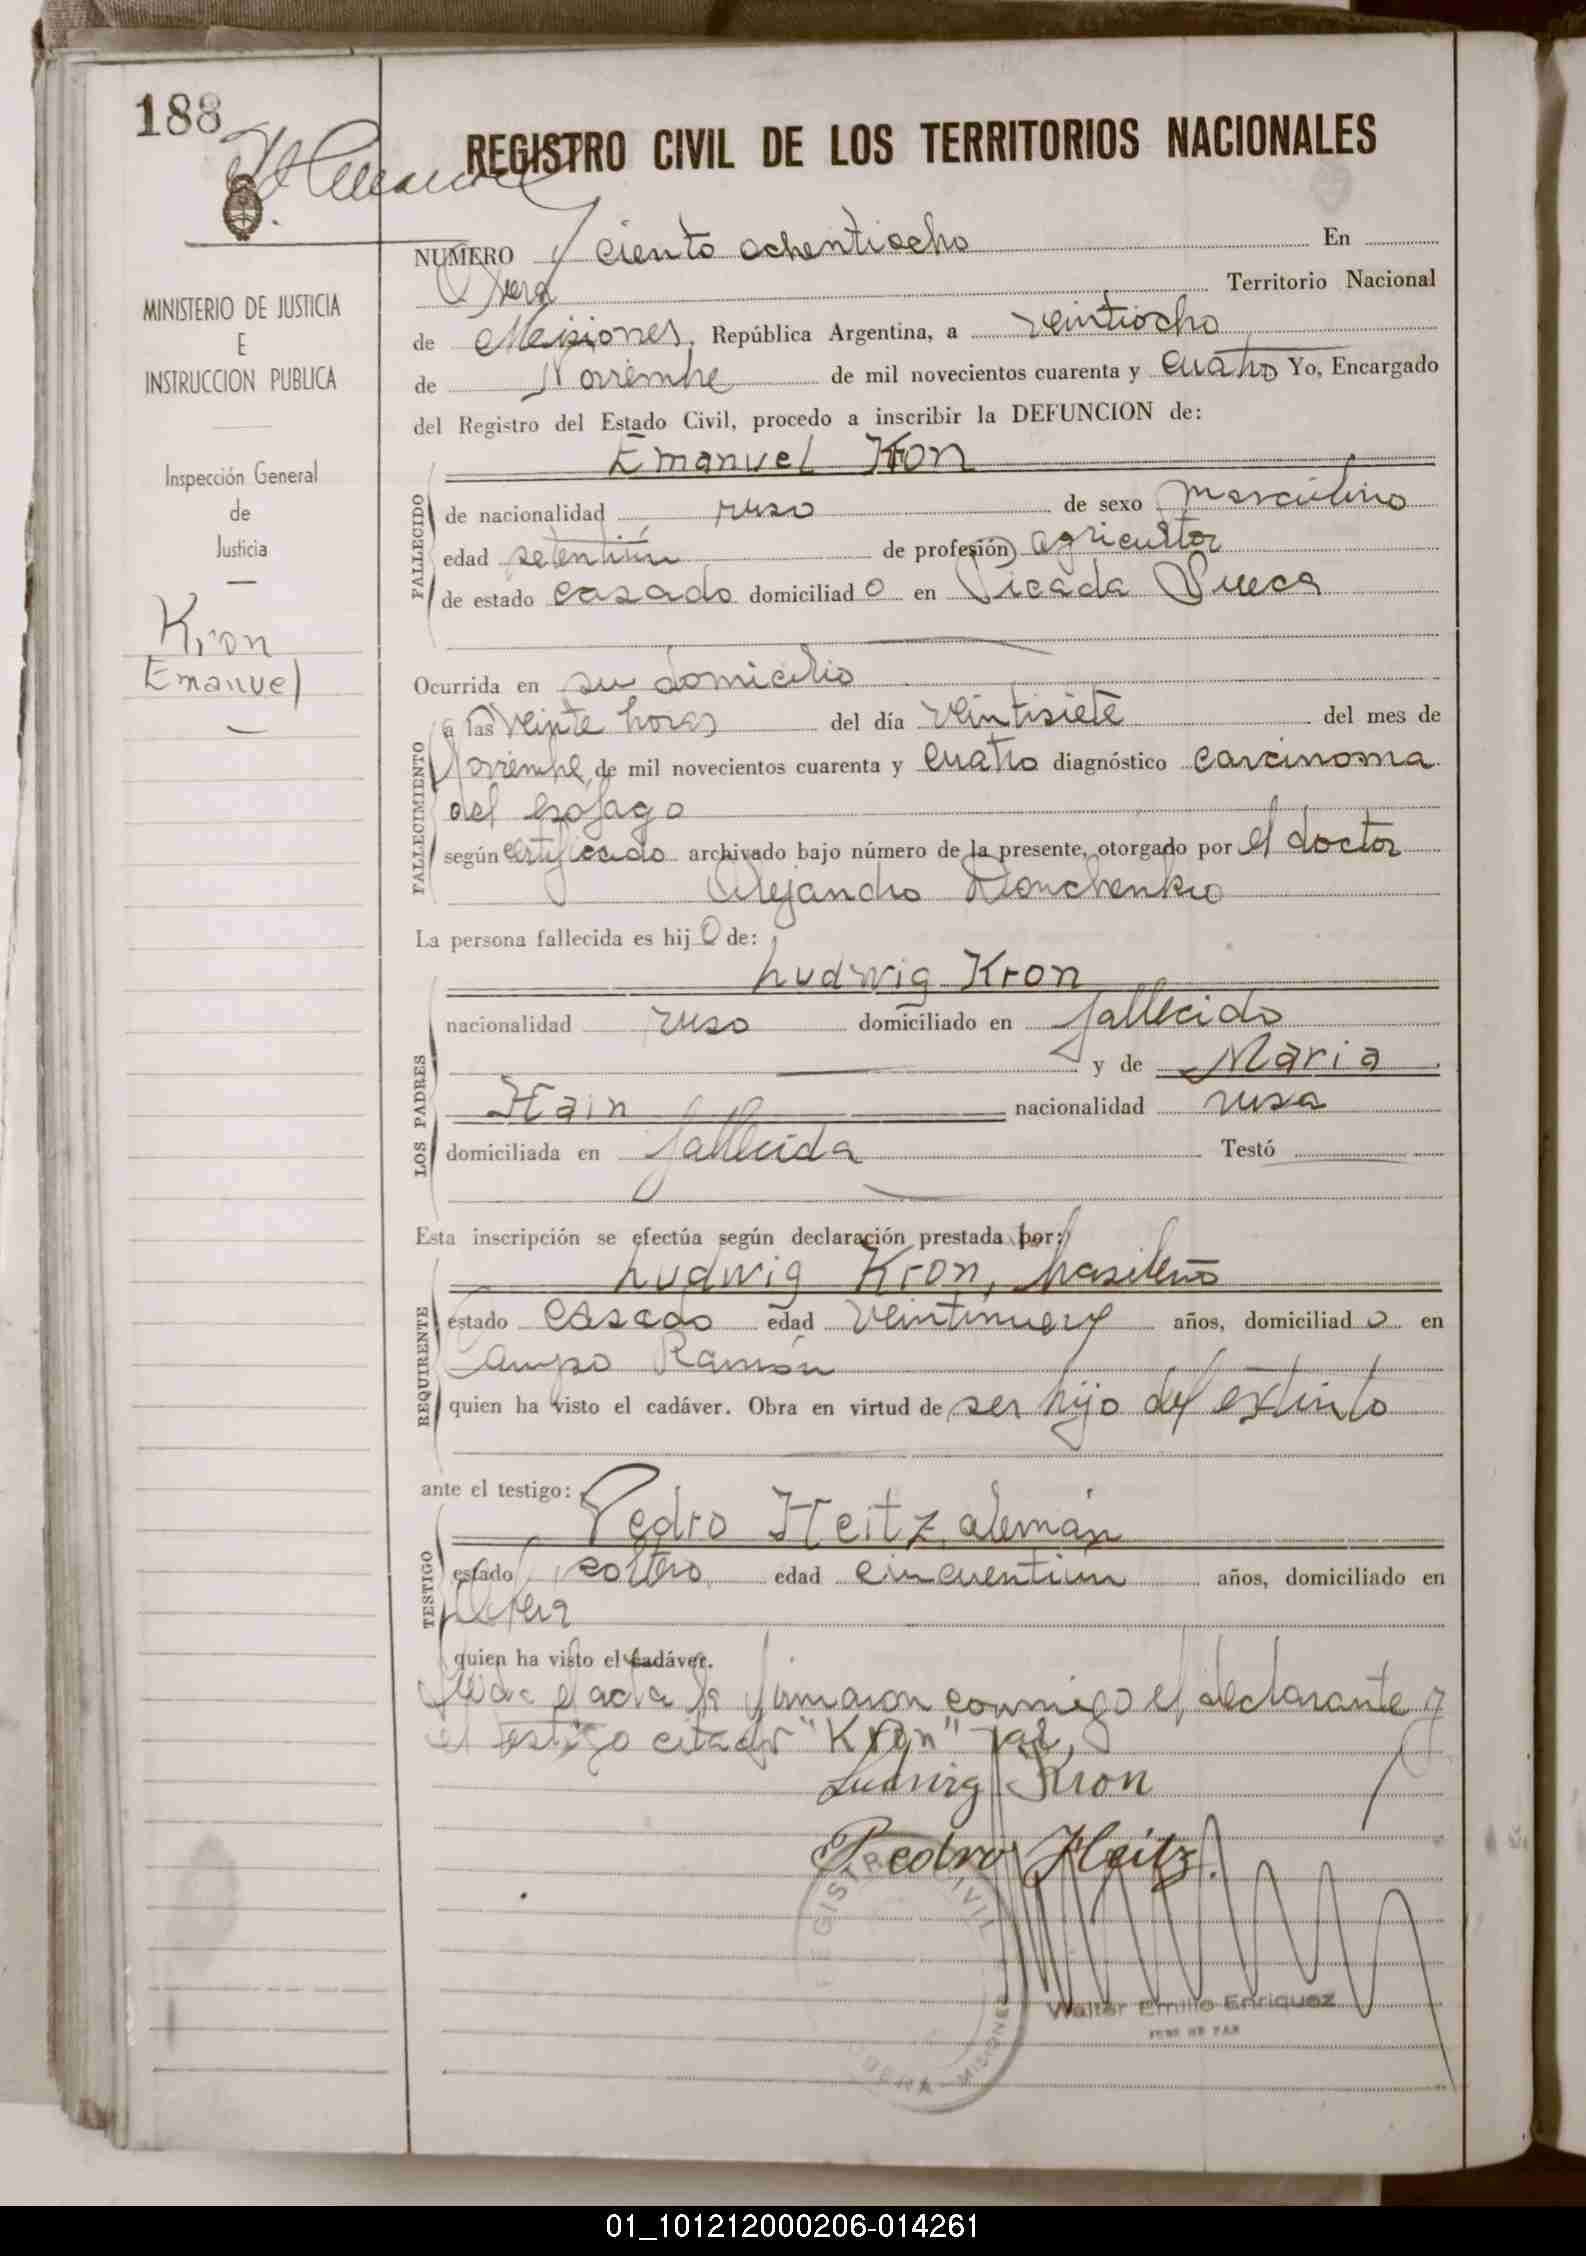 188
REGISTRO CIVIL DE LOS TERRITORIOS NACIONALES
MINISTERIO DE JUSTICIA
E
INSTRUCCION PUBLICA
Inspección General
de
Justicia
Kron
Emanuel
NUMERO ciento ochentiocho En
Oberá Territorio Nacional
de Misiones, República Argentina, a veintiocho
de Noviembre de mil novecientos cuarenta y cuatro Yo, Encargado
del Registro del Estado Civil, procedo a inscribir la DEFUNCION de:
Emanuel Kron
FALLECIDO
de nacionalidad ruso de sexo masculino
edad setentiún de profesión agricultor
de estado casado domiciliad o en Picada Sueca
Ocurrida en su domicilio
FALLECIMIENTO
a las veinte horas del día veintisiete del mes de
Noviembre de mil novecientos cuarenta y cuatro diagnóstico carcinoma
del esófago
según certificado archivado bajo número de la presente, otorgado por el doctor
Alejandro
La persona fallecida es hij o de:
Ludwig Kron
LOS PADRES
nacionalidad ruso domiciliado en fallecido
y de Maria
Hain nacionalidad rusa
domiciliada en fallecida Testó
Esta inscripción se efectúa según declaración prestada por:
Ludwig Kron, brasileño
REQUIRENTE
estado casado edad veintinueve años, domiciliad o en
Campo Ramón
quien ha visto el cadáver. Obra en virtud de ser hijo del extinto
ante el testigo:
Pedro Heitz, alemán
TESTIGO
estado soltero edad cincuentiún años, domiciliado en
Oberá
quien ha visto el cadáver.
Leida el acta la firmaron conmigo el declarante y
el testigo citado "Kron" vale,
Ludwig Kron
Pedro Heitz.
REGISTRO CIVIL
OBERA - MISIONES
Walter Emilio Enriquez
JUEZ DE PAZ
01_101212000206-014261